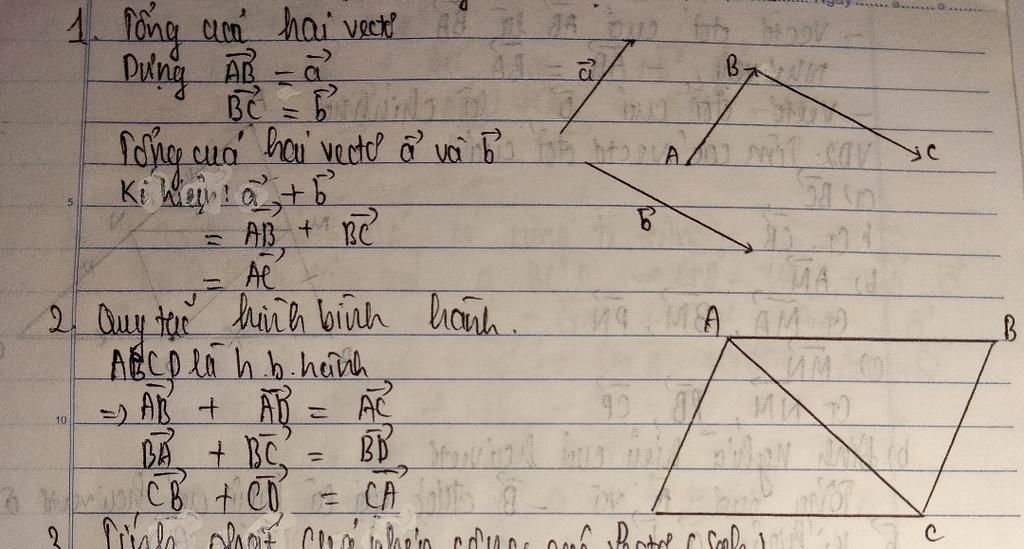 1. Tổng của hai vectơ
Dựng AB→ = a→
BC→ = b→
a→
B
A
C
Tổng của hai vectơ a→ và b→
Kí hiệu: a→ + b→
b→
= AB→ + BC→
= AC→
2. Quy tắc hình bình hành.
A
B
ABCD là h.b.hành
=> AB→ + AD→ = AC→
BA→ + BC→ = BD→
CB→ + CD→ = CA→
D
C
3. Tính chất của phép cộng
5
10